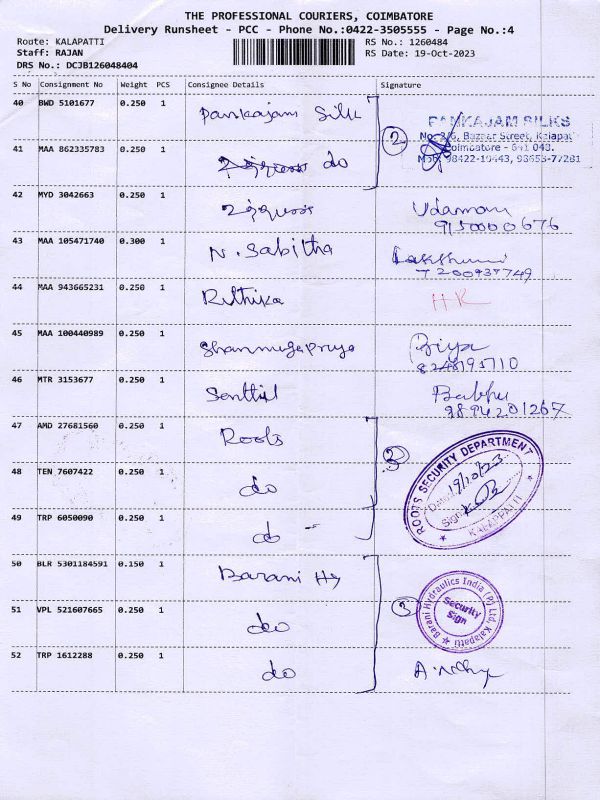 THE PROFESSIONAL COURIERS, COIMBATORE
Delivery Runsheet - PCC - Phone No.:0422-3505555 - Page No.:4
Route: KALAPATTI
RS No.: 1260484
Staff: RAJAN
RS Date: 19-Oct-2023
DRS No.: DCJB126048404
S No Consignment No Weight PCS Consignee Details Signature
40 BWD 5101677 0.250 1 Pankajam Silk
PANKAJAM SILKS
No. 3/6, Bazaar Street, Kalapat
Coimbatore - 641 048.
Mob: 98422-10443, 98653-77281
2
41 MAA 862335783 0.250 1 do
42 MYD 3042663 0.250 1
9150000676
43 MAA 105471740 0.300 1 N. Sabitha
7200937749
44 MAA 943665231 0.250 1 Rithika HK
45 MAA 100440989 0.250 1 Shanmugapriya Priya
8248195710
46 MTR 3153677 0.250 1 Senthil
9894201267
47 AMD 27681560 0.250 1 Roots
3
ROOTS SECURITY DEPARTMENT
Date: 19/10/23
Sign
KALAPPATTI
48 TEN 7607422 0.250 1 do
49 TRP 6050090 0.250 1 do
50 BLR 5301184591 0.150 1 Barani Hy
3
Barani Hydraulics India (P) Ltd, Kalapatti
Security
Sign
51 VPL 521607665 0.250 1 do
52 TRP 1612288 0.250 1 do